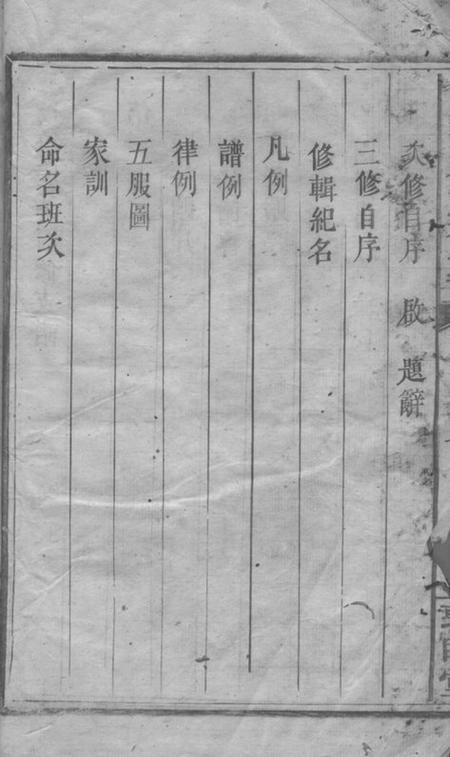 次修自序 啟 題辭
三修自序
修輯紀名
凡例
譜例
律例
五服圖
家訓
命名班次